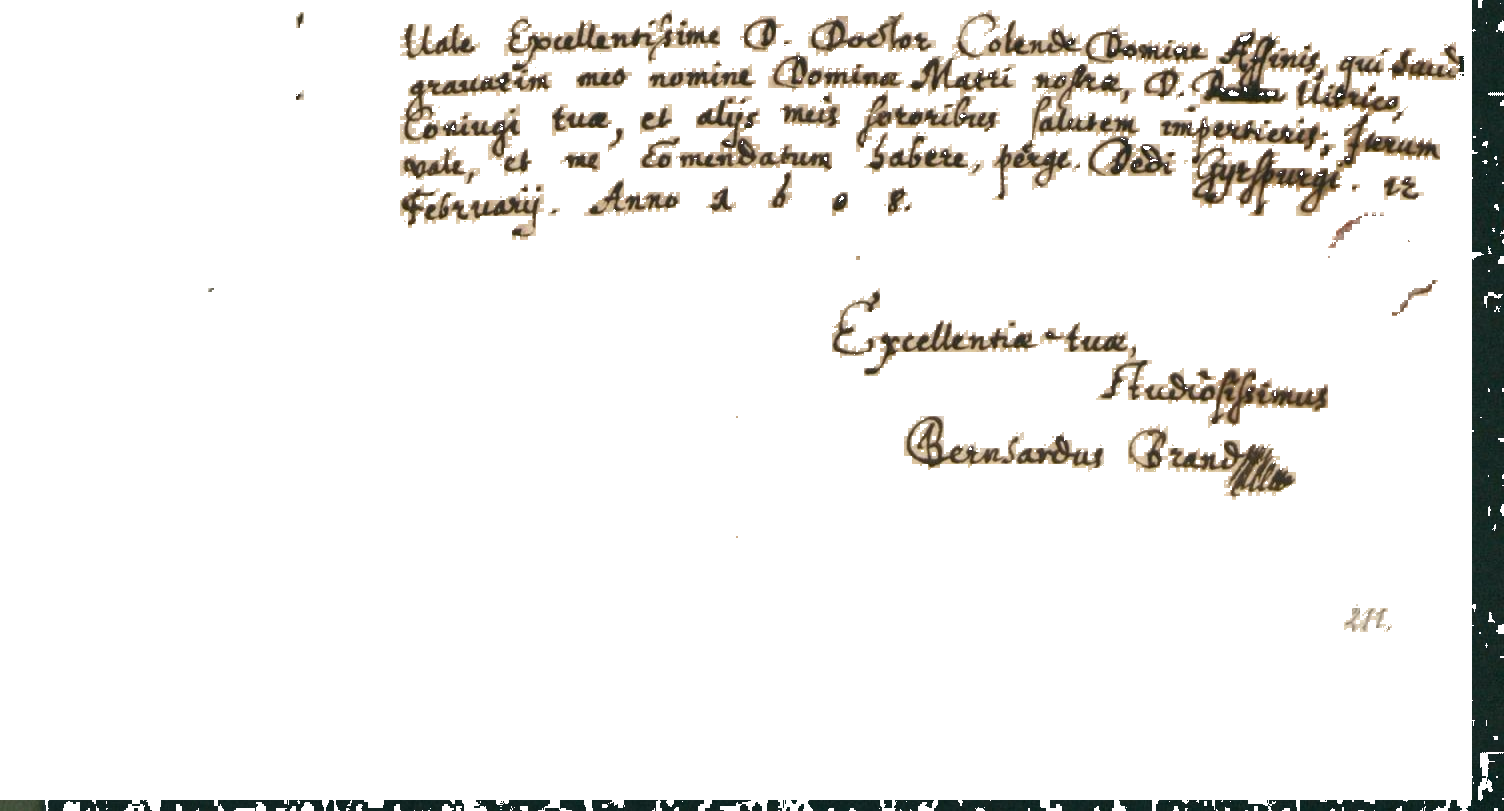 Vale Excellentissime D. Doctor Colende Domine Affinis, qui haud
grauatim meo nomine Dominæ Matri nostræ, D. Vitrico,
Coniugi tuæ, et alijs meis sororibus salutem impertieris; Iterum
vale, et me Comendatum habere, perge. Dedi Gyrspurgi. 12
Februarij. Anno 1608.
Excellentiæ tuæ,
Studiosissimus
Bernhardus Brand
211.